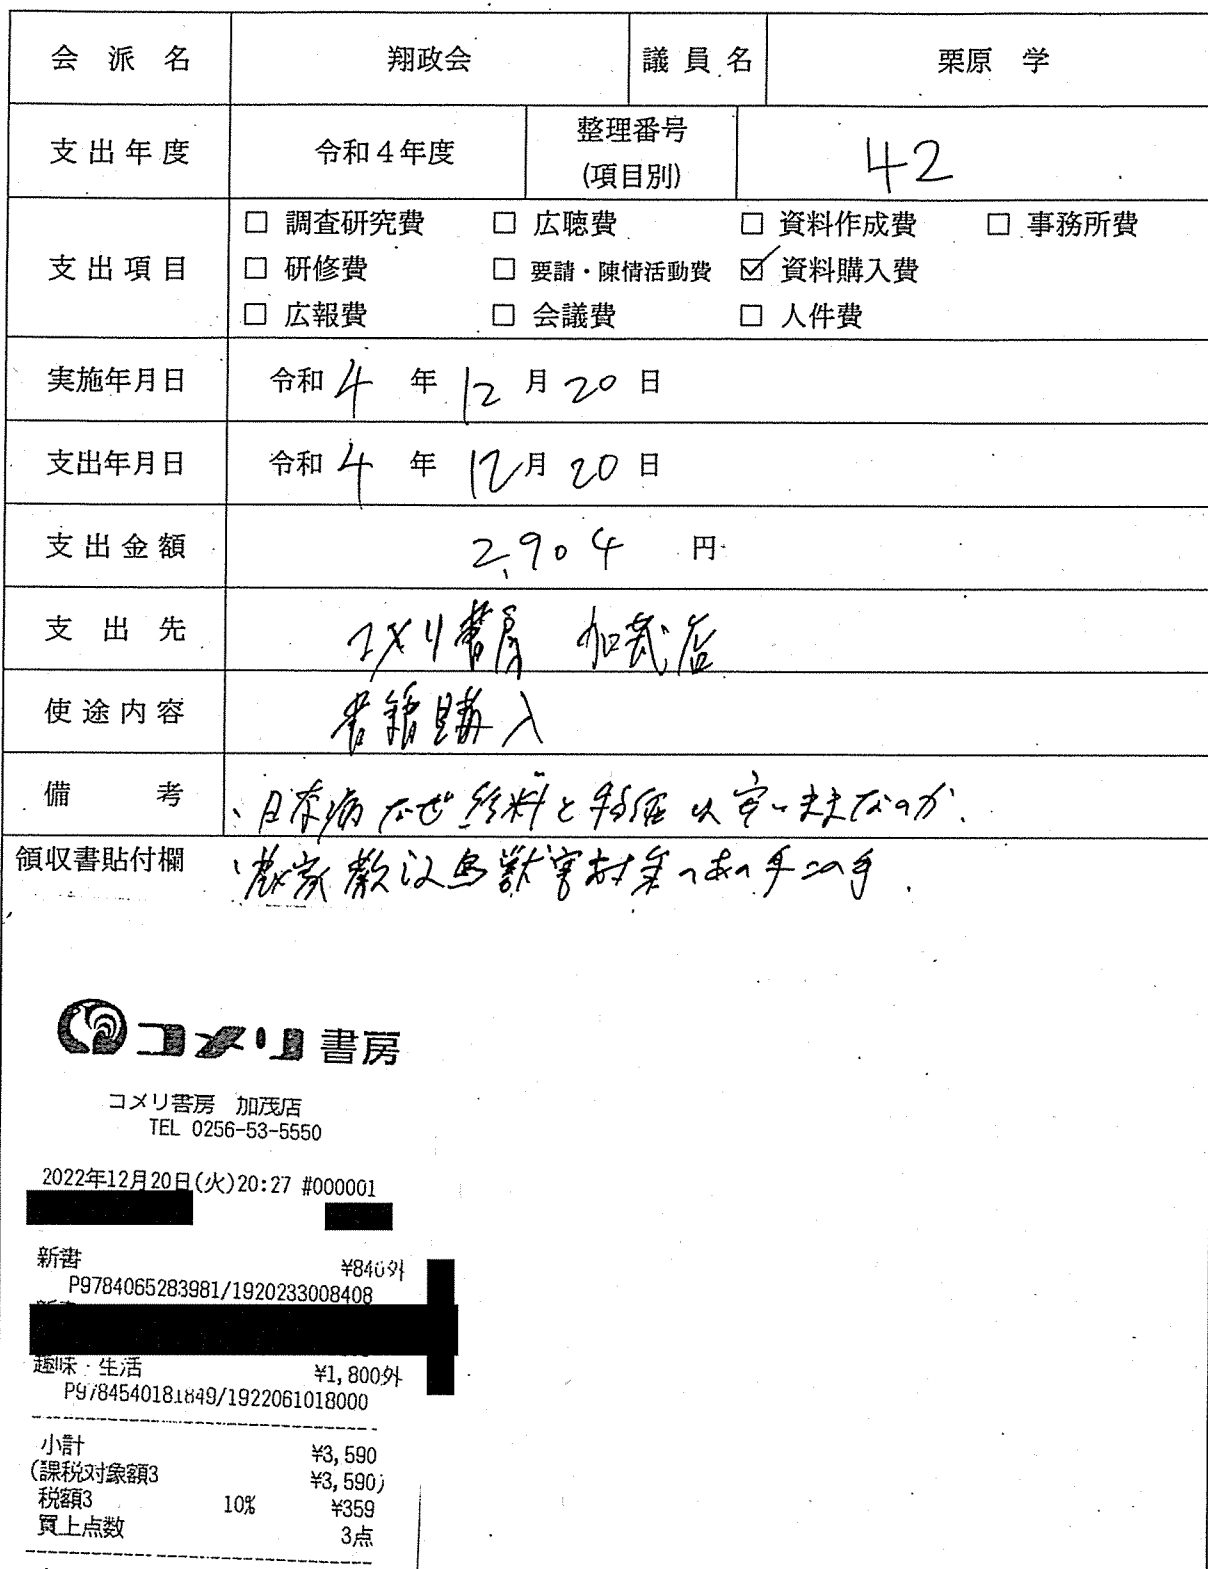 会派名 翔政会 議員名 栗原 学
支出年度 令和4年度 整理番号(項目別) 42
支出項目
□ 調査研究費 □ 広聴費 □ 資料作成費 □ 事務所費
□ 研修費 □ 要請・陳情活動費 ☑ 資料購入費
□ 広報費 □ 会議費 □ 人件費
実施年月日 令和 4 年 12 月 20 日
支出年月日 令和 4 年 12 月 20 日
支出金額 2,904 円
支出先 コメリ書房 加茂店
使途内容 書籍購入
備考 、日本病なぜ給料と物価は安いままなのか、
領収書貼付欄 、農家が教える鳥獣害対策のあの手この手、
コメリ書房
コメリ書房 加茂店
TEL 0256-53-5550
2022年12月20日(火)20:27 #000001
新書 ¥840外
P9784065283981/1920233008408
趣味・生活 ¥1,800外
P9784540181849/1922061018000
小計 ¥3,590
(課税対象額3 ¥3,590)
税額3 10% ¥359
買上点数 3点